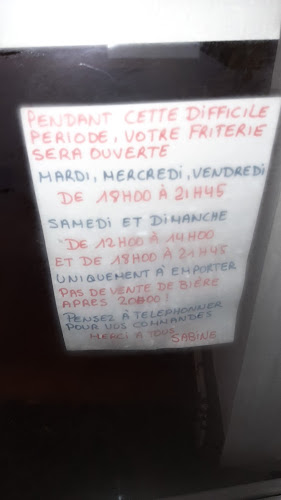 PENDANT CETTE DIFFICILE
PERIODE, VOTRE FRITERIE
SERA OUVERTE
MARDI, MERCREDI, VENDREDI
DE 18H00 À 21H45
SAMEDI ET DIMANCHE
DE 12H00 À 14H00
ET DE 18H00 À 21H45
UNIQUEMENT A EMPORTER
PAS DE VENTE DE BIÈRE
APRES 20H00 !
PENSEZ À TELEPHONNER
POUR VOS COMMANDES
MERCI A TOUS
SABINE